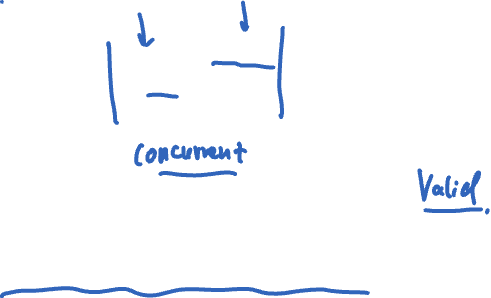 Concurrent
Valid.